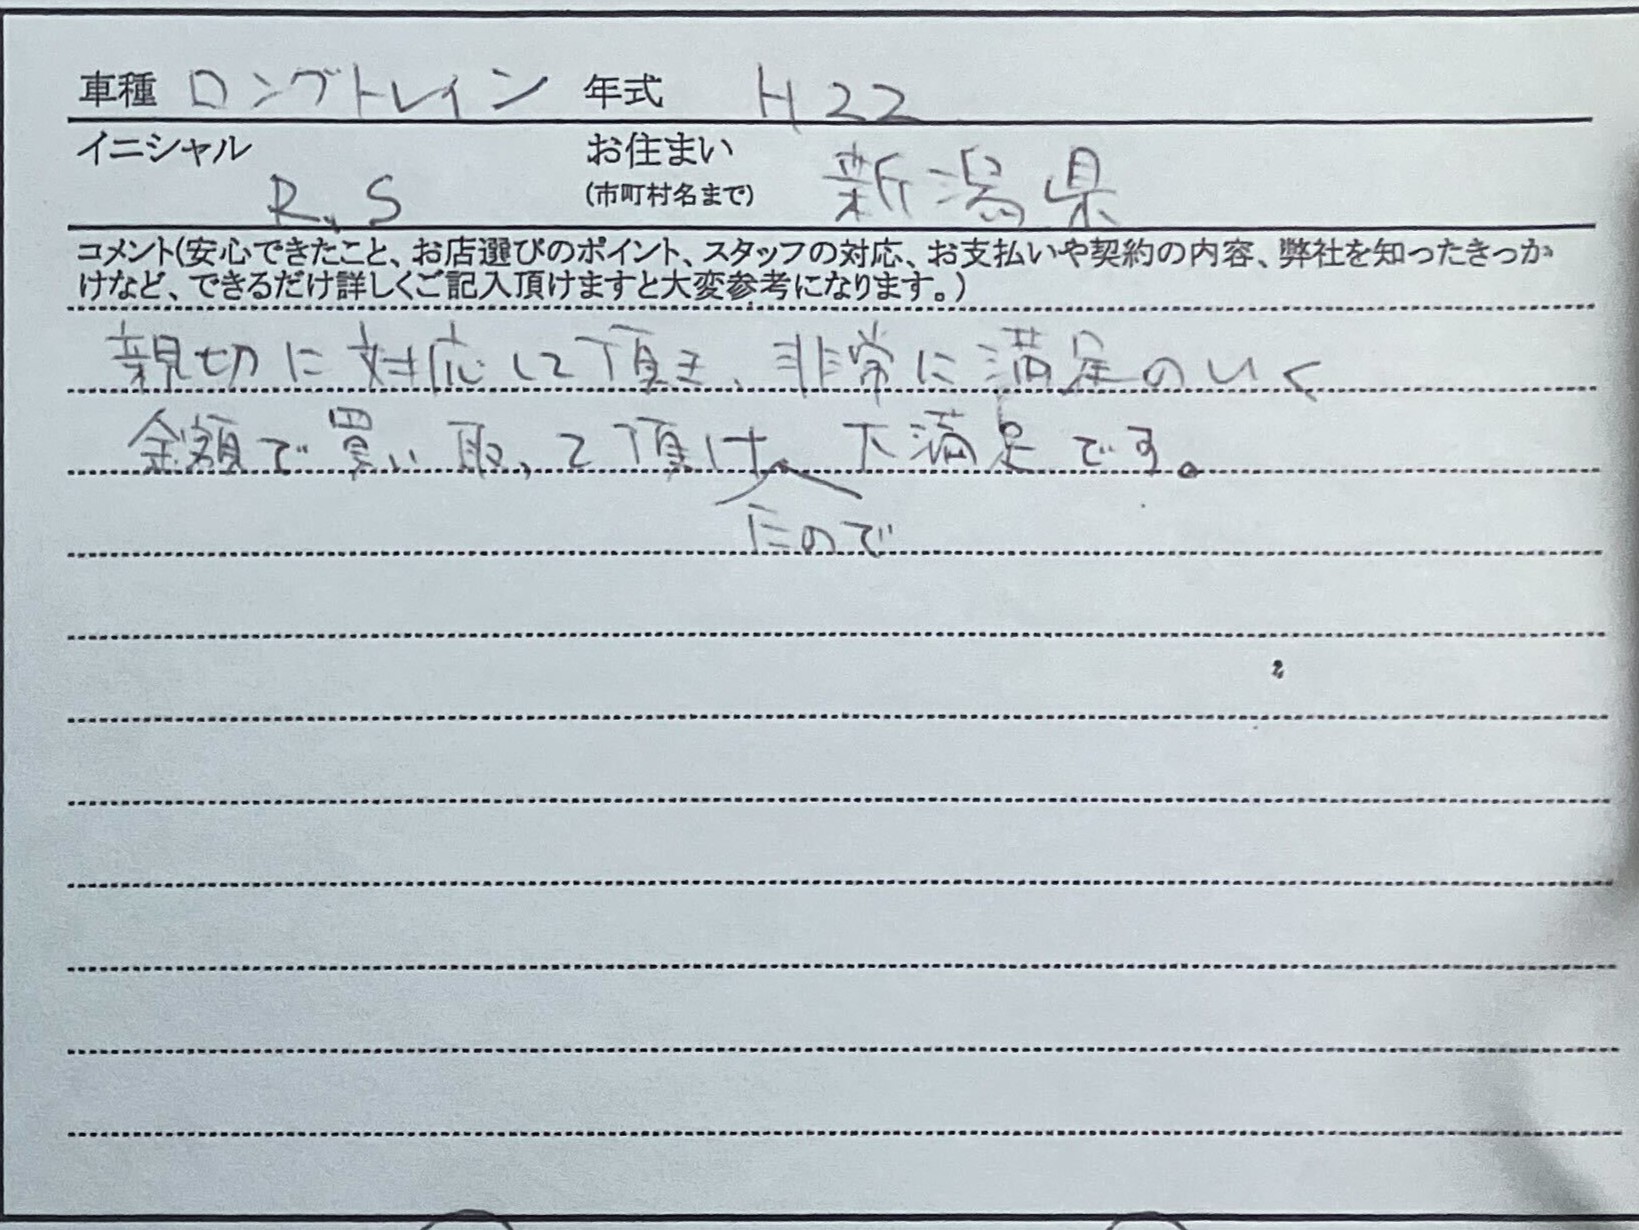 車種 ロングトレイン 年式 H22
イニシャル R,S お住まい(市町村名まで) 新潟県
コメント(安心できたこと、お店選びのポイント、スタッフの対応、お支払いや契約の内容、弊社を知ったきっか
けなど、できるだけ詳しくご記入頂けますと大変参考になります。)
親切に対応して頂き、非常に満足のいく
金額で買い取って頂け 大満足です。
たので